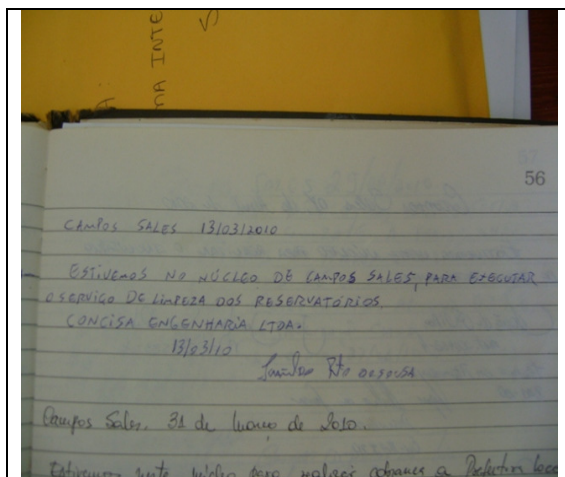 MA INTE
56
CAMPOS SALES 13/03/2010
ESTIVEMOS NO NÚCLEO DE CAMPOS SALES, PARA EXECUTAR
O SERVIÇO DE LIMPEZA DOS RESERVATÓRIOS.
CONCISA ENGENHARIA LTDA.
13/03/10
DE SOUSA
Campos Sales, 31 de março de 2010.
Estivemos neste núcleo para realizar a